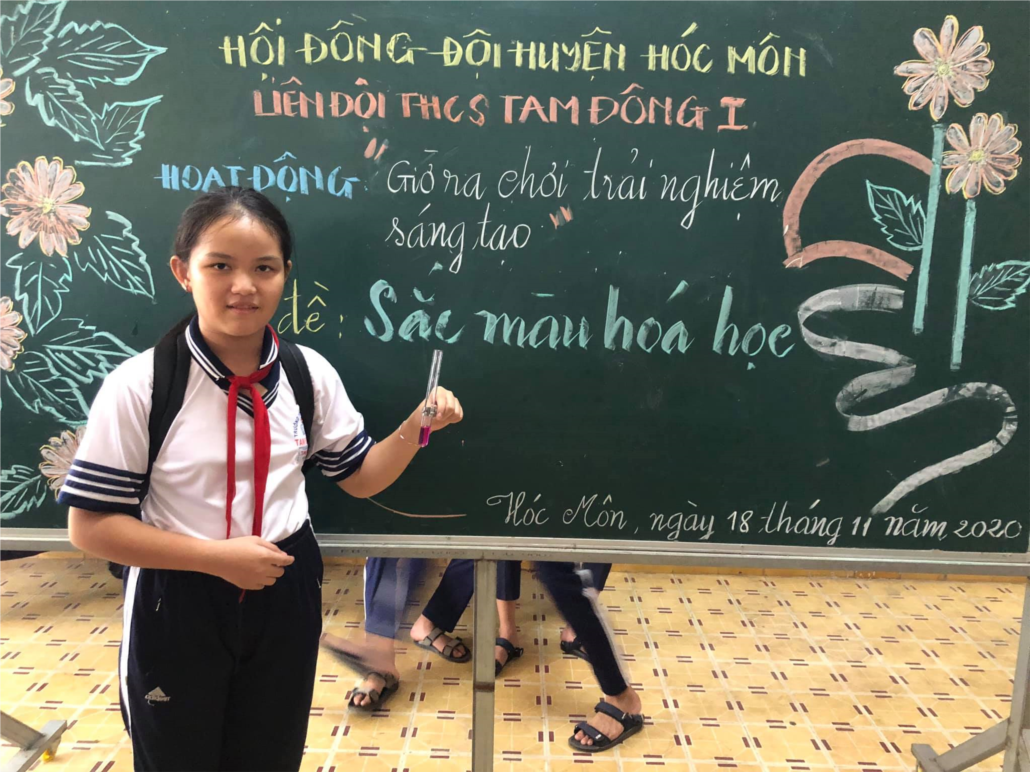 HỘI ĐỒNG ĐỘI HUYỆN HÓC MÔN
LIÊN ĐỘI THCS TAM ĐÔNG I
HOẠT ĐỘNG: "Giờ ra chơi trải nghiệm
sáng tạo"
đề: Sắc màu hoá học
Hóc Môn, ngày 18 tháng 11 năm 2020